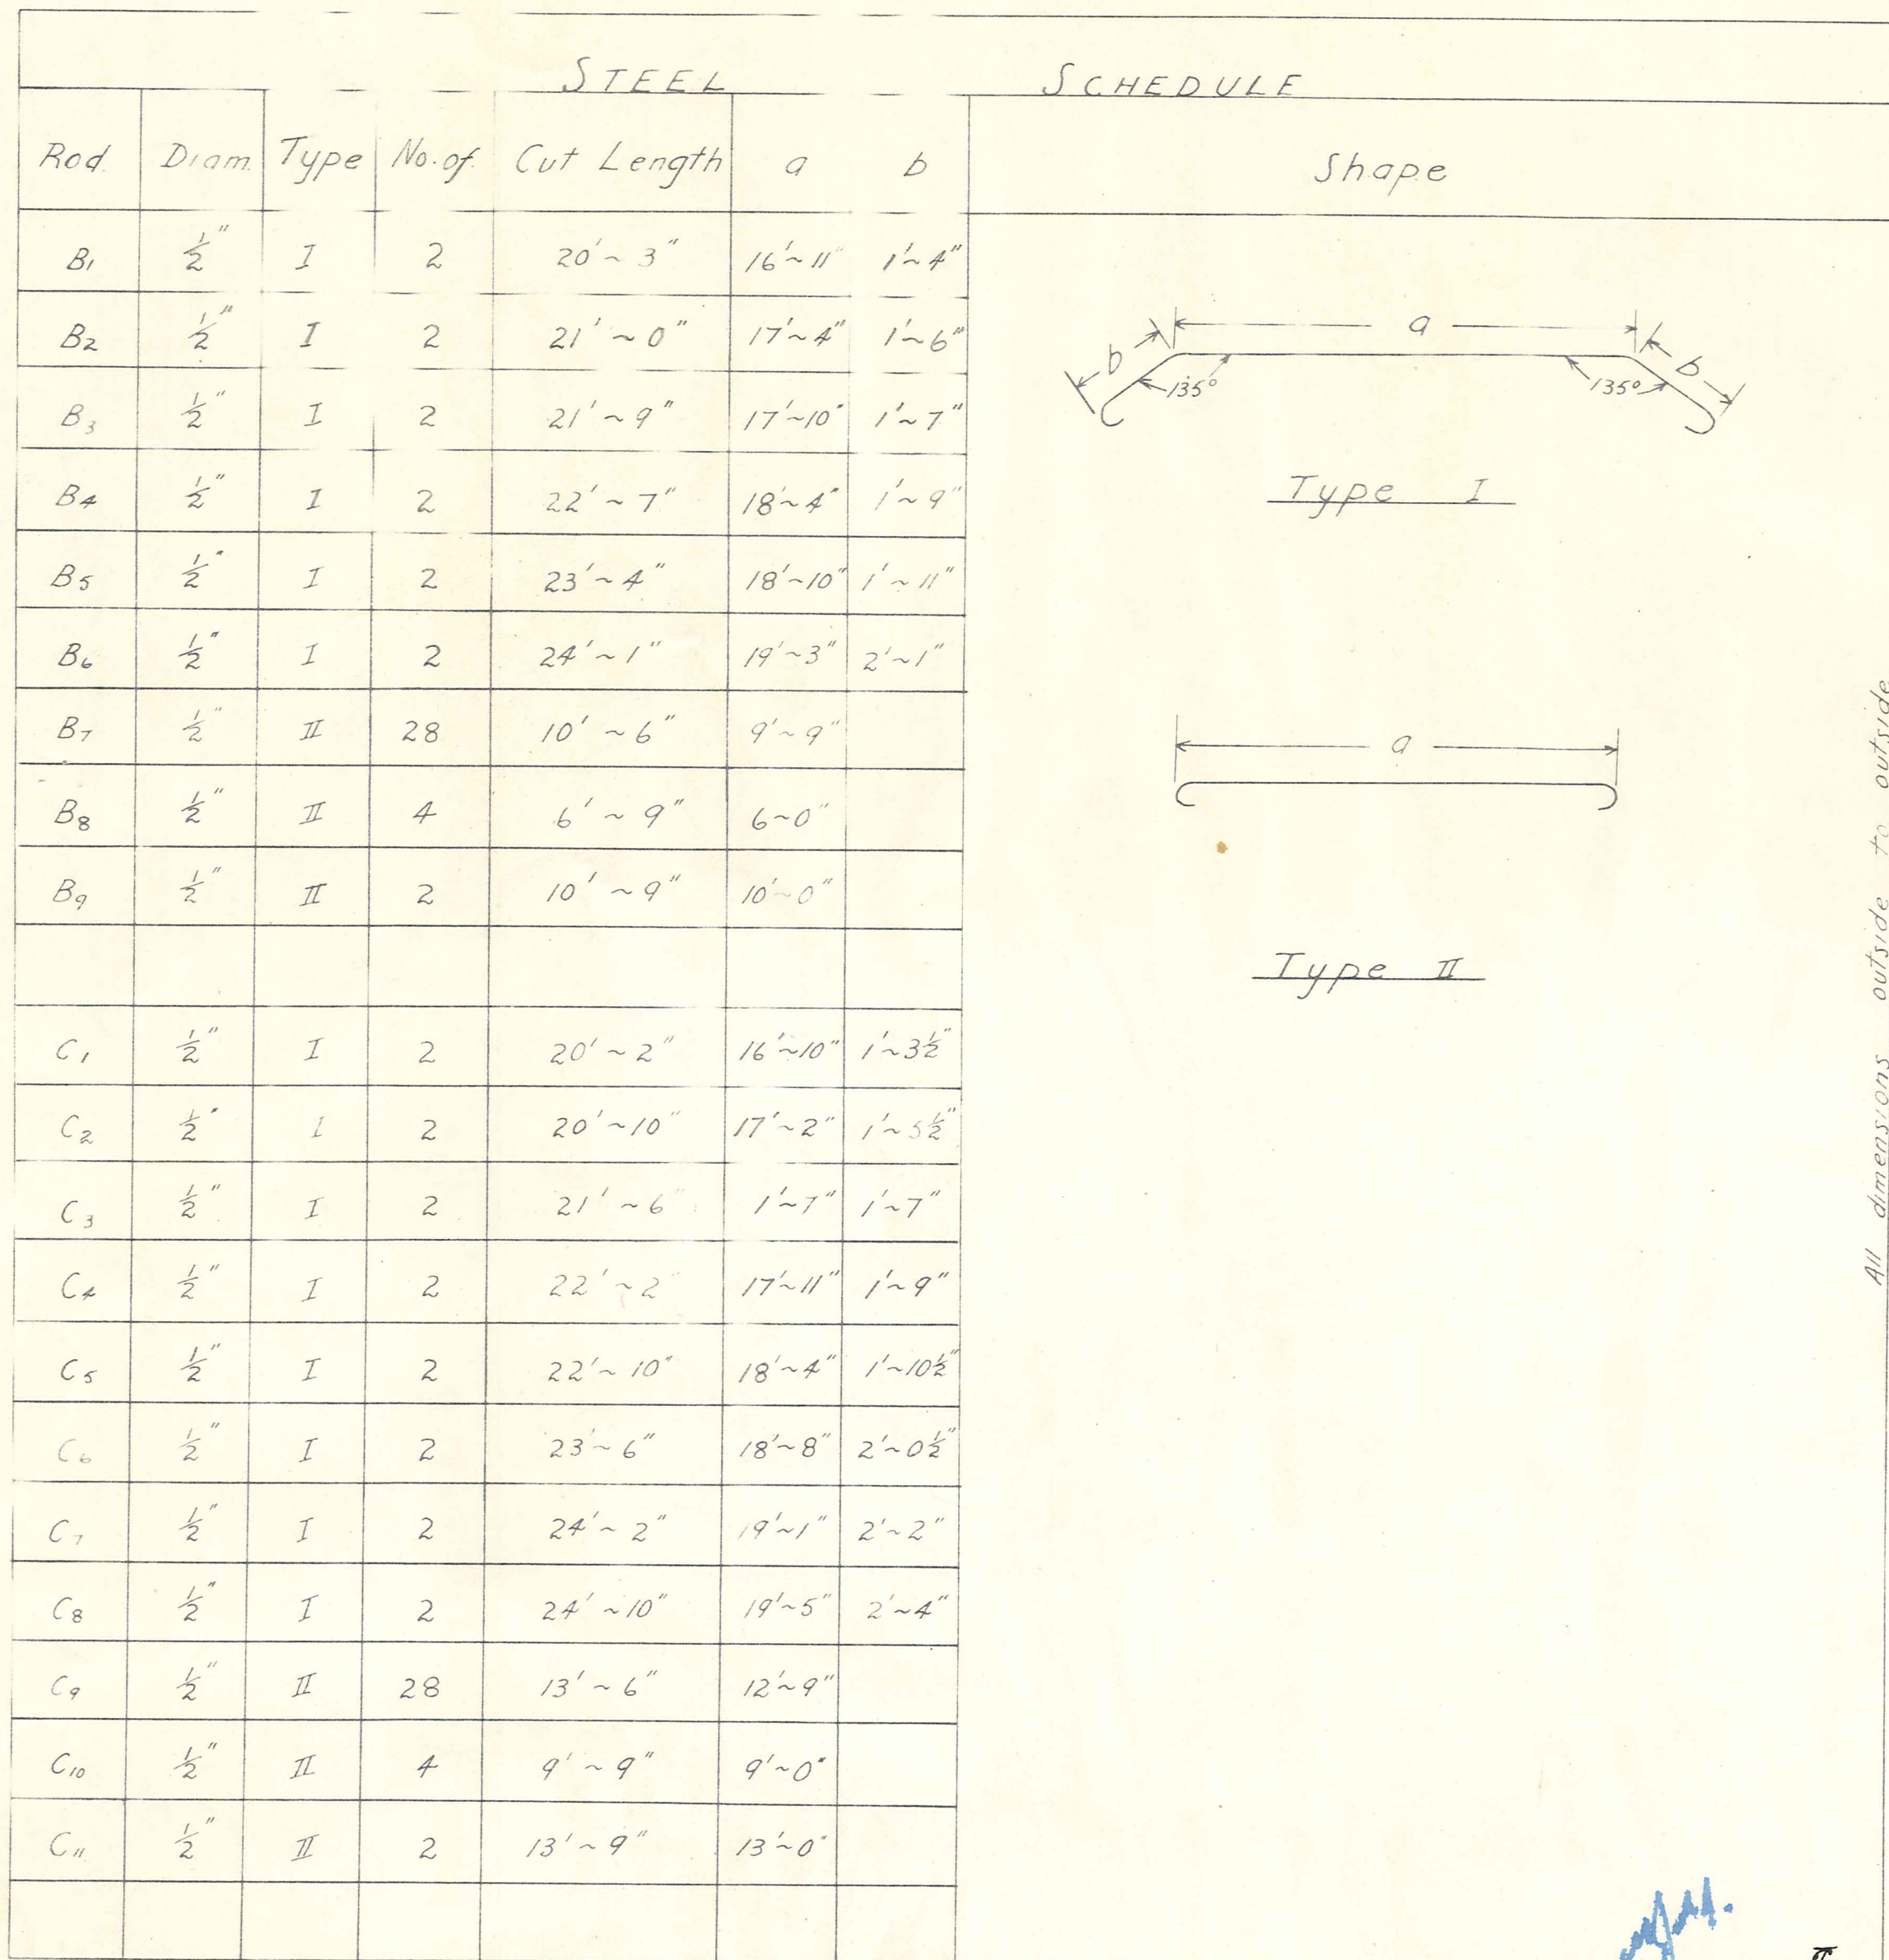 STEEL SCHEDULE
Rod. Diam. Type No. of. Cut Length a b Shape
B1 ½" I 2 20'~3" 16'~11" 1'~4"
B2 ½" I 2 21'~0" 17'~4" 1'~6"
B3 ½" I 2 21'~9" 17'~10" 1'~7"
B4 ½" I 2 22'~7" 18'~4" 1'~9"
B5 ½" I 2 23'~4" 18'~10" 1'~11"
B6 ½" I 2 24'~1" 19'~3" 2'~1"
B7 ½" II 28 10'~6" 9'~9"
B8 ½" II 4 6'~9" 6~0"
B9 ½" II 2 10'~9" 10'~0"
C1 ½" I 2 20'~2" 16'~10" 1'~3½"
C2 ½" I 2 20'~10" 17'~2" 1'~5½"
C3 ½" I 2 21'~6" 1'~7" 1'~7"
C4 ½" I 2 22'~2" 17'~11" 1'~9"
C5 ½" I 2 22'~10" 18'~4" 1'~10½"
C6 ½" I 2 23'~6" 18'~8" 2'~0½"
C7 ½" I 2 24'~2" 19'~1" 2'~2"
C8 ½" I 2 24'~10" 19'~5" 2'~4"
C9 ½" II 28 13'~6" 12'~9"
C10 ½" II 4 9'~9" 9'~0"
C11 ½" II 2 13'~9" 13'~0"
a
b b
135° 135°
Type I
a
Type II
All dimensions outside to outside